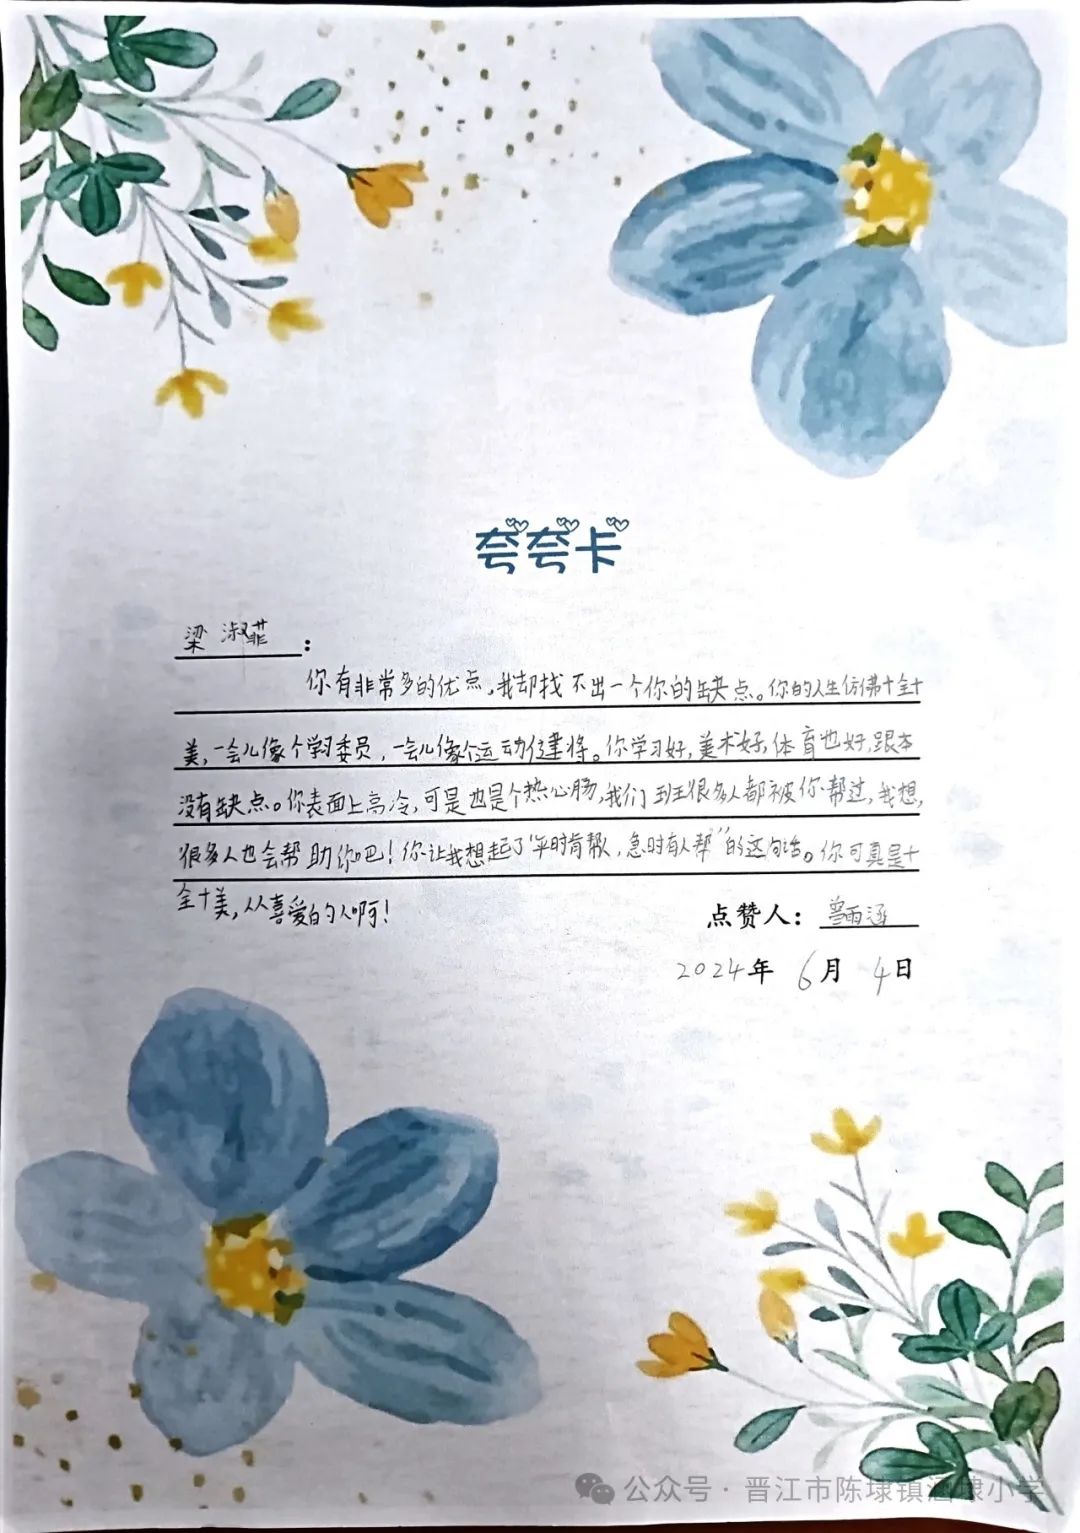 夸夸卡
梁淑菲：
你有非常多的优点，我却找不出一个你的缺点。你的人生仿佛十全十
美，一会儿像个学习委员，一会儿像个运动健将。你学习好，美术好，体育也好，跟本
没有缺点。你表面上高冷，可是也是个热心肠，我们班很多人都被你帮过，我想，
很多人也会帮助你吧！你让我想起了“平时肯帮人，急时有人帮”的这句话。你可真是十
全十美，人人喜爱的人啊！
点赞人：曾雨涵
2024年 6月 4日
公众号·晋江市陈埭镇涵埭小学